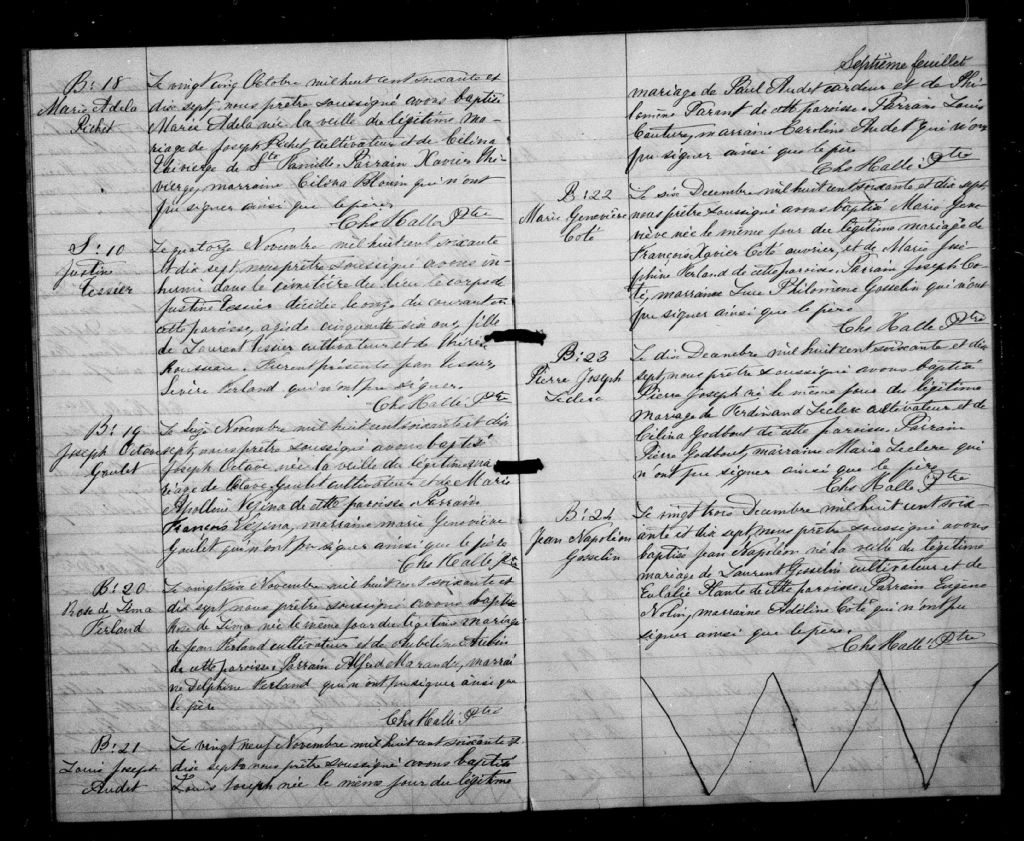 B: 18
Marie Adela
Pichet
Le vingt cinq Octobre mil huit cent soixante et
dix sept, nous prêtre soussigné avons baptisé
Marie Adela née la veille du légitime ma-
riage de Joseph Pichet cultivateur et de Célina
de Ste Famille. Parrain Xavier Thi-
vierge, marraine Célina Blouin qui n'ont
pu signer ainsi que le père.
Chs Hallé Ptre
S: 10
Justine
Tessier
Le quatorze Novembre mil huit cent soixante
et dix sept, nous prêtre soussigné avons in-
humé dans le cimetière du lieu le corps de
Justine Tessier décédée le onze du courant en
cette paroisse, agée de cinquante six ans, fille
de Laurent Tessier cultivateur et de Thérèse
Rousseau. Furent présents Jean Tessier,
Ferland qui n'ont pu signer.
Chs Hallé Ptre
B: 19
Joseph Octave
Goulet
Le seize Novembre mil huit cent soixante et dix
sept, nous prêtre soussigné avons baptisé
Joseph Octave né la veille du légitime ma-
riage de Octave Goulet cultivateur et de Marie
Apolline Vézina de cette paroisse. Parrain
François Vézina, marraine Marie Geneviève
Goulet qui n'ont pu signer ainsi que le père
Chs Hallé Ptre
B: 20
Rose de Lima
Ferland
Le vingt six Novembre mil huit cent soixante et
dix sept, nous prêtre soussigné avons baptisé
Rose de Lima née le même jour du légitime mariage
de Jean Ferland cultivateur et de Aubin
de cette paroisse. Parrain Alfred Marandz, marrai
ne Delphine Ferland qui n'ont pu signer ainsi que
le père
Chs Hallé Ptre
B: 21
Louis Joseph
Audet
Le vingt neuf Novembre mil huit cent soixante et
dix sept, nous prêtre soussigné avons baptisé
Louis Joseph née le même jour du légitime
Septième feuillet
mariage de Paul Audet cardeur et de Phi-
lomène Parant de cette paroisse. Parrain Louis
Couture, marraine Caroline Audet qui n'ont
pu signer ainsi que le père
Chs Hallé Ptre
B: 22
Marie Geneviève
Coté
Le six Decembre mil huit cent soixante et dix sept,
nous prêtre soussigné avons baptisé Marie Gene-
viève née le même jour du légitime mariage de
François Xavier Coté ouvrier, et de Marie José-
phine Ferland de cette paroisse. Parrain Joseph Co-
té, marraine Luce Philomène Gosselin qui n'ont
pu signer ainsi que le père.
Chs Hallé Ptre
B: 23
Pierre Joseph
Leclerc
Le dix Decembre mil huit cent soixante et dix
sept, nous prêtre soussigné avons baptisé
Pierre Joseph né le même jour du légitime
mariage de Ferdinand Leclerc cultivateur et de
Célina Godbout de cette paroisse. Parrain
Pierre Godbout, marraine Marie Leclerc qui
n'ont pu signer ainsi que le père
Chs Hallé Ptre
B: 24
Jean Napoléon
Gosselin
Le vingt trois Decembre mil huit cent soix-
ante et dix sept, nous prêtre soussigné avons
baptisé Jean Napoléon né la veille du légitime
mariage de Laurent Gosselin cultivateur et de
Eulalie Plante de cette paroisse. Parrain Eugène
Nolin, marraine Adéline Coté qui n'ont pu
signer ainsi que le père.
Chs Hallé Ptre